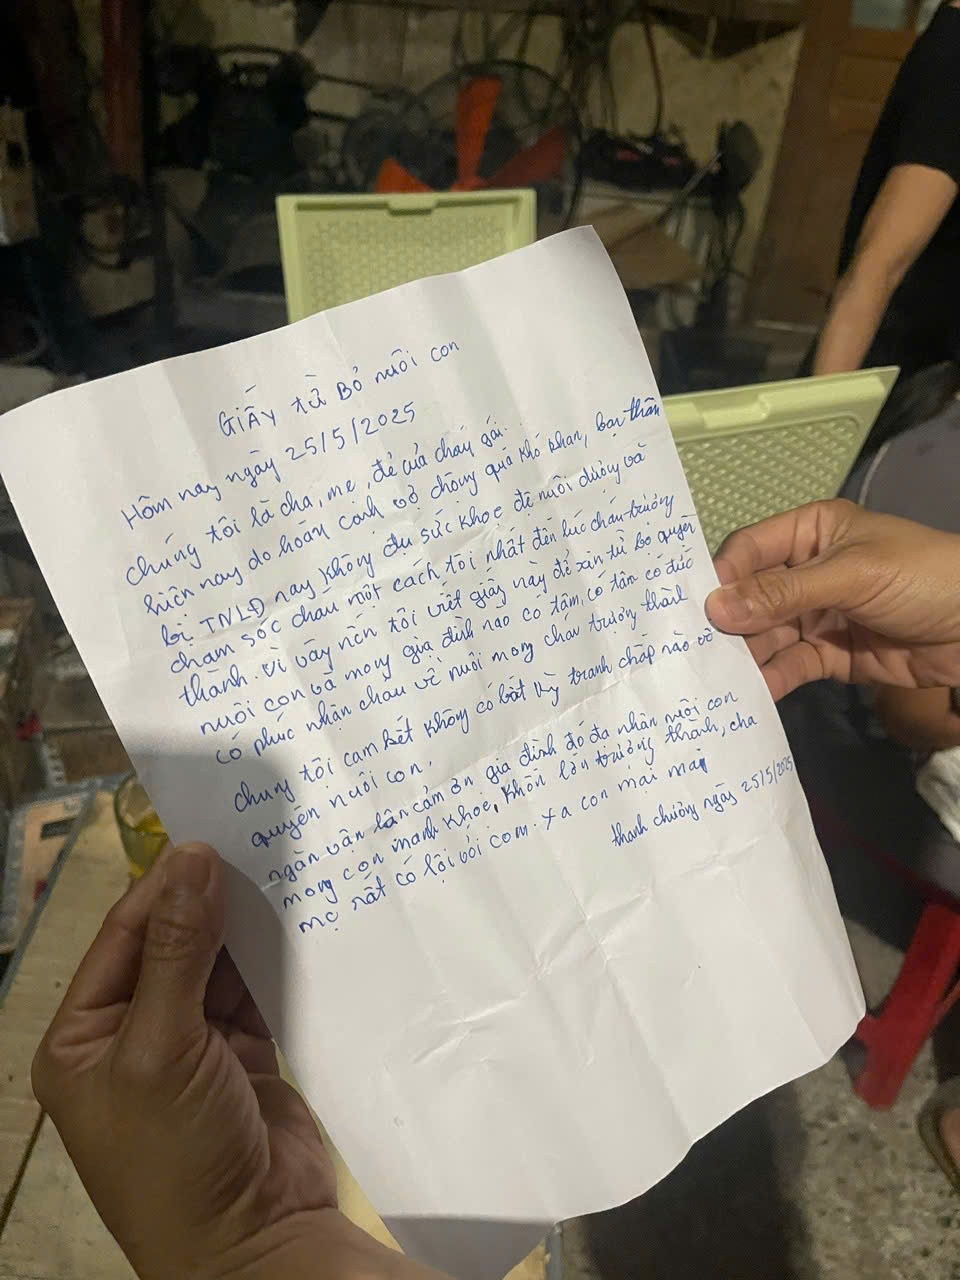 GIẤY từ Bỏ nuôi con
Hôm nay ngày 25/5/2025
chúng tôi là cha, mẹ, đẻ của cháy gái.
hiện nay do hoàn cảnh vợ chồng quá khó khan, bạn thân
bị TNLĐ nay không đủ sức khoẻ để nuôi dưỡng và
chăm sóc cháu một cách tôi nhất đến lúc cháu trưởng
thành. Vì vậy nên tôi viết giấy này để xin từ bỏ quyền
nuôi con và mong gia đình nào có tâm, có tâm có đức
có phúc nhận cháu về nuôi mong cháu trưởng thành
chúng tôi cam kết không có bất kỳ tranh chấp nào về
quyền nuôi con.
ngàn vần lần cảm ơn gia đình đó đã nhân nuôi con
mong con mạnh khoẻ, khôn lớn trưởng thành, cha
mẹ rất có lỗi với con. xa con mại mại
thanh chương ngày 25/5/2025